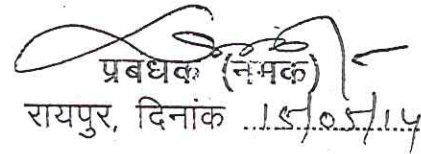 प्रबंधक (नमक)
रायपुर, दिनांक 15/05/14